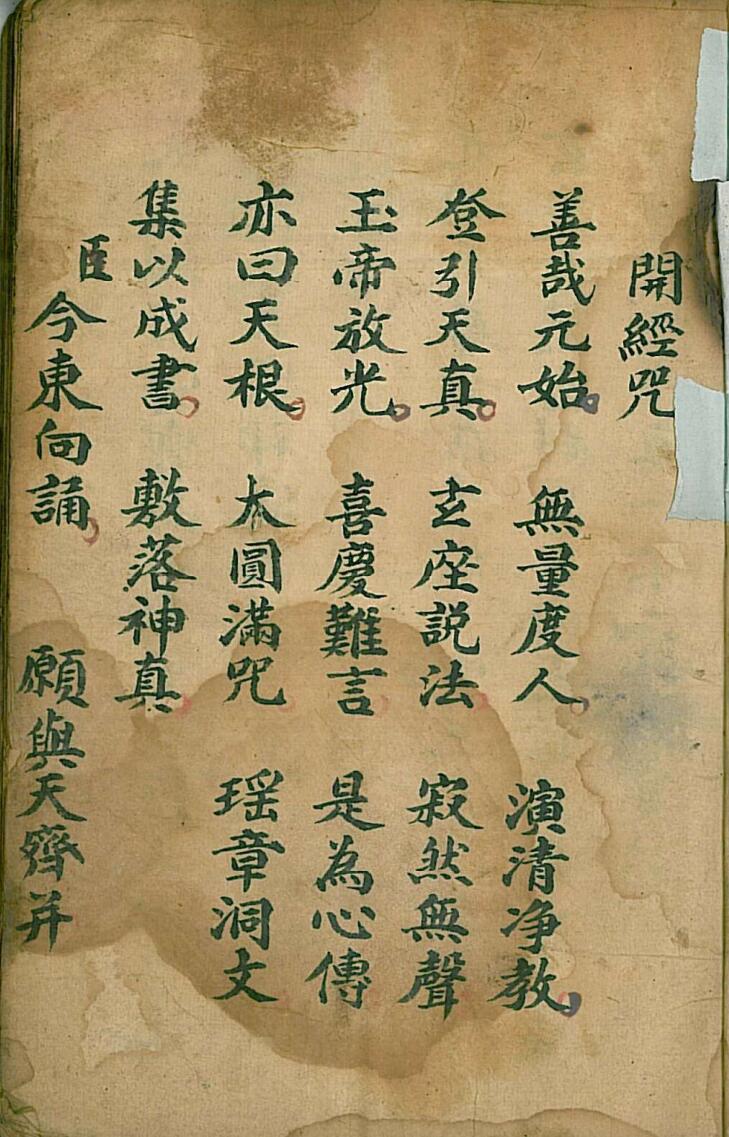 開經咒
善哉元始 無量度人 演清净教
登引天真 玄座説法 寂然無聲
玉帝放光 喜慶難言 是為心傳
亦曰天根 大圓滿咒 瑶章洞文
集以成書 敷落神真
臣今東向誦 願與天齊并